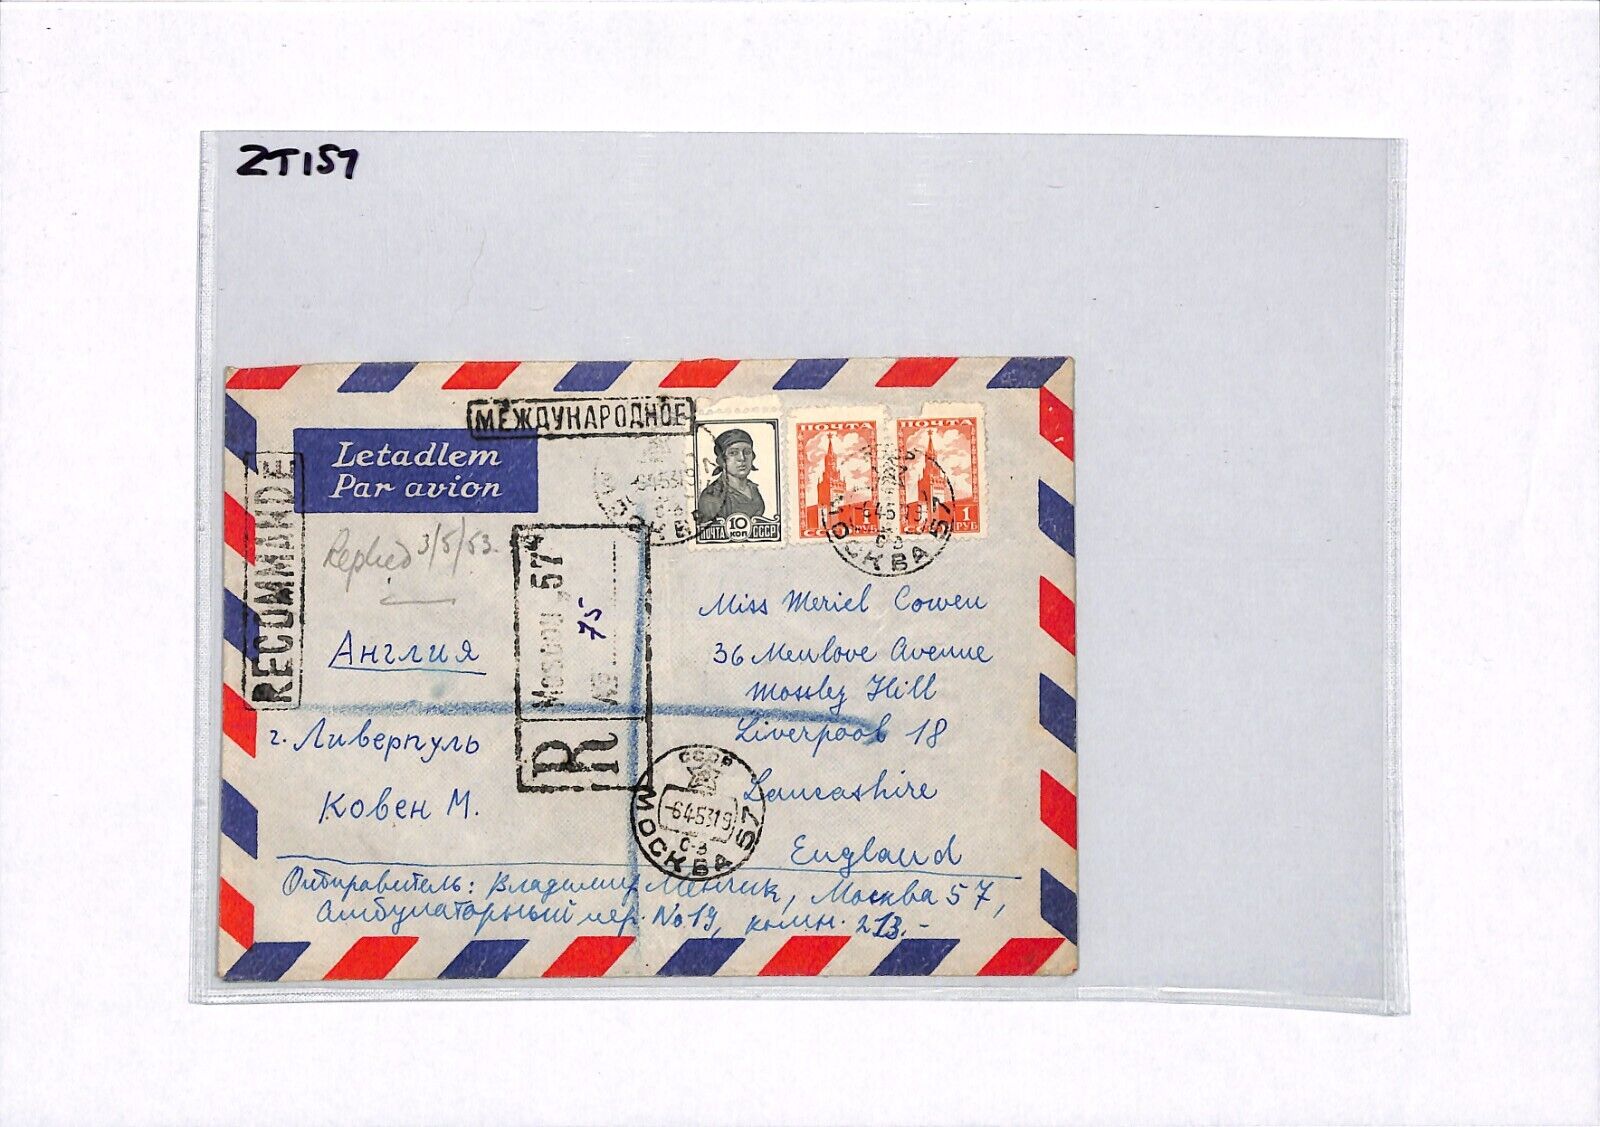 ZT157
МЕЖДУНАРОДНОЕ
Letadlem
Par avion
RECOMMANDE
Replied 3/5/53.
10
КОП
ПОЧТА СССР
ПОЧТА
1
РУБ
СССР
ПОЧТА
1
РУБ
МОСКВА 57
-645319
МОСКВА 57
-645319
R Moscou 57
№ 75
Англия
г. Ливерпуль
Ковен М.
Miss Meriel Cowen
36 Menlove Avenue
Mossley Hill
Liverpool 18
Lancashire
England
СССР
-645319
С-3
МОСКВА 57
Отправитель: Владимир Менчик, Москва 57,
Амбулаторный пер. No 19, комн. 213.-